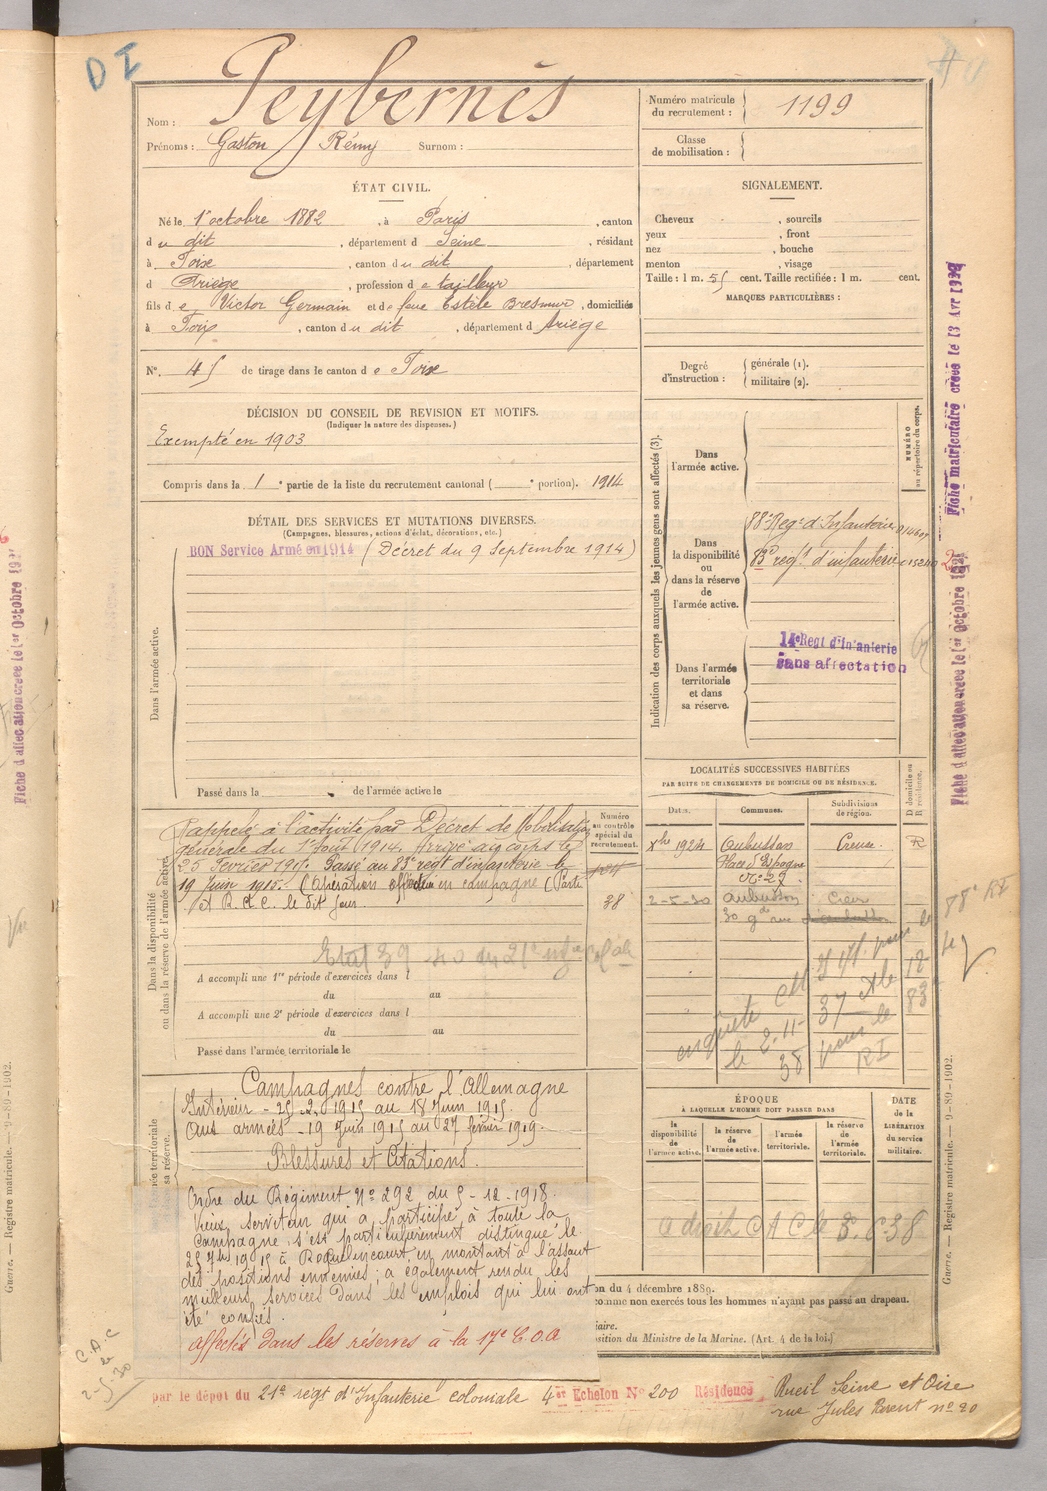 D I
Nom : Peybernès
Prénoms : Gaston Rémy Surnom :
Numéro matricule du recrutement : 1199
Classe de mobilisation :
ÉTAT CIVIL.
Né le 1er octobre 1882, à Paris, canton
du dit, département d Seine, résidant
à Foix, canton du dit, département
d Ariège, profession de tailleur
fils de Victor Germain et de feue Estèle, domiciliés
à Foix, canton du dit, département d Ariège
No. 45 de tirage dans le canton de Foix
SIGNALEMENT.
Cheveux , sourcils
yeux , front
nez , bouche
menton , visage
Taille : 1 m. 55 cent. Taille rectifiée : 1 m. cent.
MARQUES PARTICULIÈRES :
Degré d'instruction : générale (1).
militaire (2).
DÉCISION DU CONSEIL DE REVISION ET MOTIFS.
(Indiquer la nature des dispenses.)
Exempté en 1903
Compris dans la 1e partie de la liste du recrutement cantonal ( e portion). 1914
DÉTAIL DES SERVICES ET MUTATIONS DIVERSES.
(Campagnes, blessures, actions d'éclat, décorations, etc.)
BON Service Armé en 1914 (Décret du 9 Septembre 1914)
Dans l'armée active.
Passé dans la de l'armée active le
Indication des corps auxquels les jeunes gens sont affectés (3).
NUMÉRO au répertoire du corps.
Dans l'armée active.
Dans la disponibilité ou dans la réserve de l'armée active.
88e Regt d'Infanterie
83e regt d'infanterie
Dans l'armée territoriale et dans sa réserve.
14e Régt d'Infanterie
sans affectation
Fiche matriculaire créée le 13 Avr
Fiche d'affectation créée le 1er Octobre
Dans la disponibilité ou dans la réserve de l'armée active.
Numéro au contrôle spécial du recrutement.
Rappelé à l'activité par Décret de Mobilisation
générale du 1er Août 1914. Arrivé au corps le
25 Février 1915. Passé au 83e régt d'infanterie le
19 Juin 1915. (Opération effectuée en campagne (Partie
et R.C.C. le dit jour.
38
A accompli une 1re période d'exercices dans l
du au
A accompli une 2e période d'exercices dans l
du au
Passé dans l'armée territoriale le
LOCALITÉS SUCCESSIVES HABITÉES
PAR SUITE DE CHANGEMENTS DE DOMICILE OU DE RÉSIDENCE.
Dates. Communes. Subdivisions de région. D domicile ou R résidence.
Xbre 1924 Aubusson Creuse R
Place d'Espagne
No 29
2-5-30 Aubusson
30 gde rue
enquête
le 2-11-38
pour le
RI
88e RI
83e
ÉPOQUE
À LAQUELLE L'HOMME DOIT PASSER DANS
la disponibilité de l'armée active.
la réserve de l'armée active.
l'armée territoriale.
la réserve de l'armée territoriale.
DATE de la LIBÉRATION du service militaire.
a droit C A C le
Campagnes contre l'Allemagne
Intérieur - 25-2-1915 au 18 Juin 1915.
Aux armées - 19 Juin 1915 au 27 février 1919.
Blessures et Citations.
Ordre du Régiment No 292 du 5-12-1918.
Vieux serviteur qui a participé à toute la
campagne, s'est particulièrement distingué le
25 7bre 1915 à Roclincourt en montant à l'assaut
des positions ennemies ; a également rendu les
meilleurs services dans les emplois qui lui ont
été confiés.
Affectés dans les réserves à la 17e C.O.A
on du 4 décembre 1889.
comme non exercés tous les hommes n'ayant pas passé au drapeau.
iaire.
osition du Ministre de la Marine. (Art. 4 de la loi.)
C.A.C
le
2-5-30
par le dépôt du 21e régt d'Infanterie coloniale 4e Echelon No 200 Résidence Rueil Seine et Oise
rue Jules Parent no 20
Guerre. — Registre matricule. — 9-89-1902.
Fiche d'affectation créée le 1er Octobre
Guerre. — Registre matricule. — 9-89-1902.